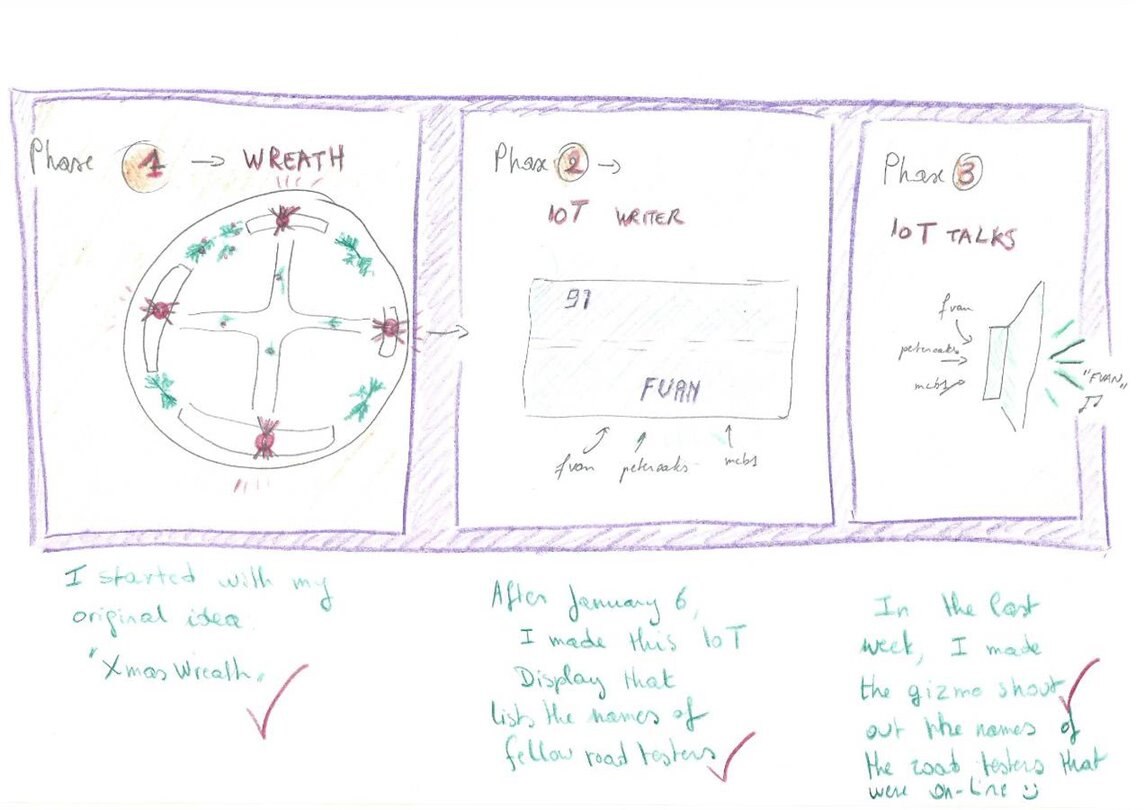 Phase 1 → WREATH
I started with my
original idea.
"Xmas Wreath"
Phase 2 →
IOT WRITER
91
FVAN
fvan peteroaks mcb1
After January 6,
I made this IoT
Display that
lists the names of
fellow road testers
Phase 3
IOT TALKS
fvan
peteroaks
mcb1
"FVAN"
In the last
week, I made
the gizmo shout
out the names of
the road testers that
were on-line